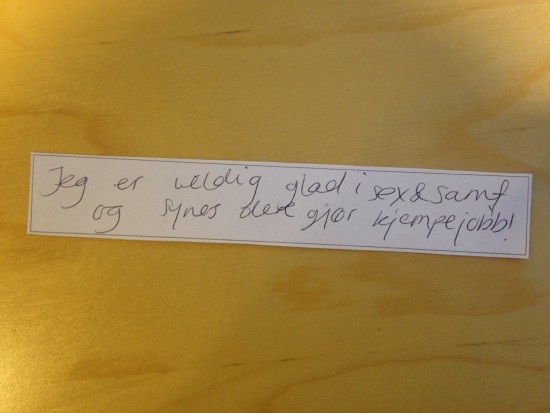 Jeg er veldig glad i sex&samf
og synes dere gjør kjempejobb!